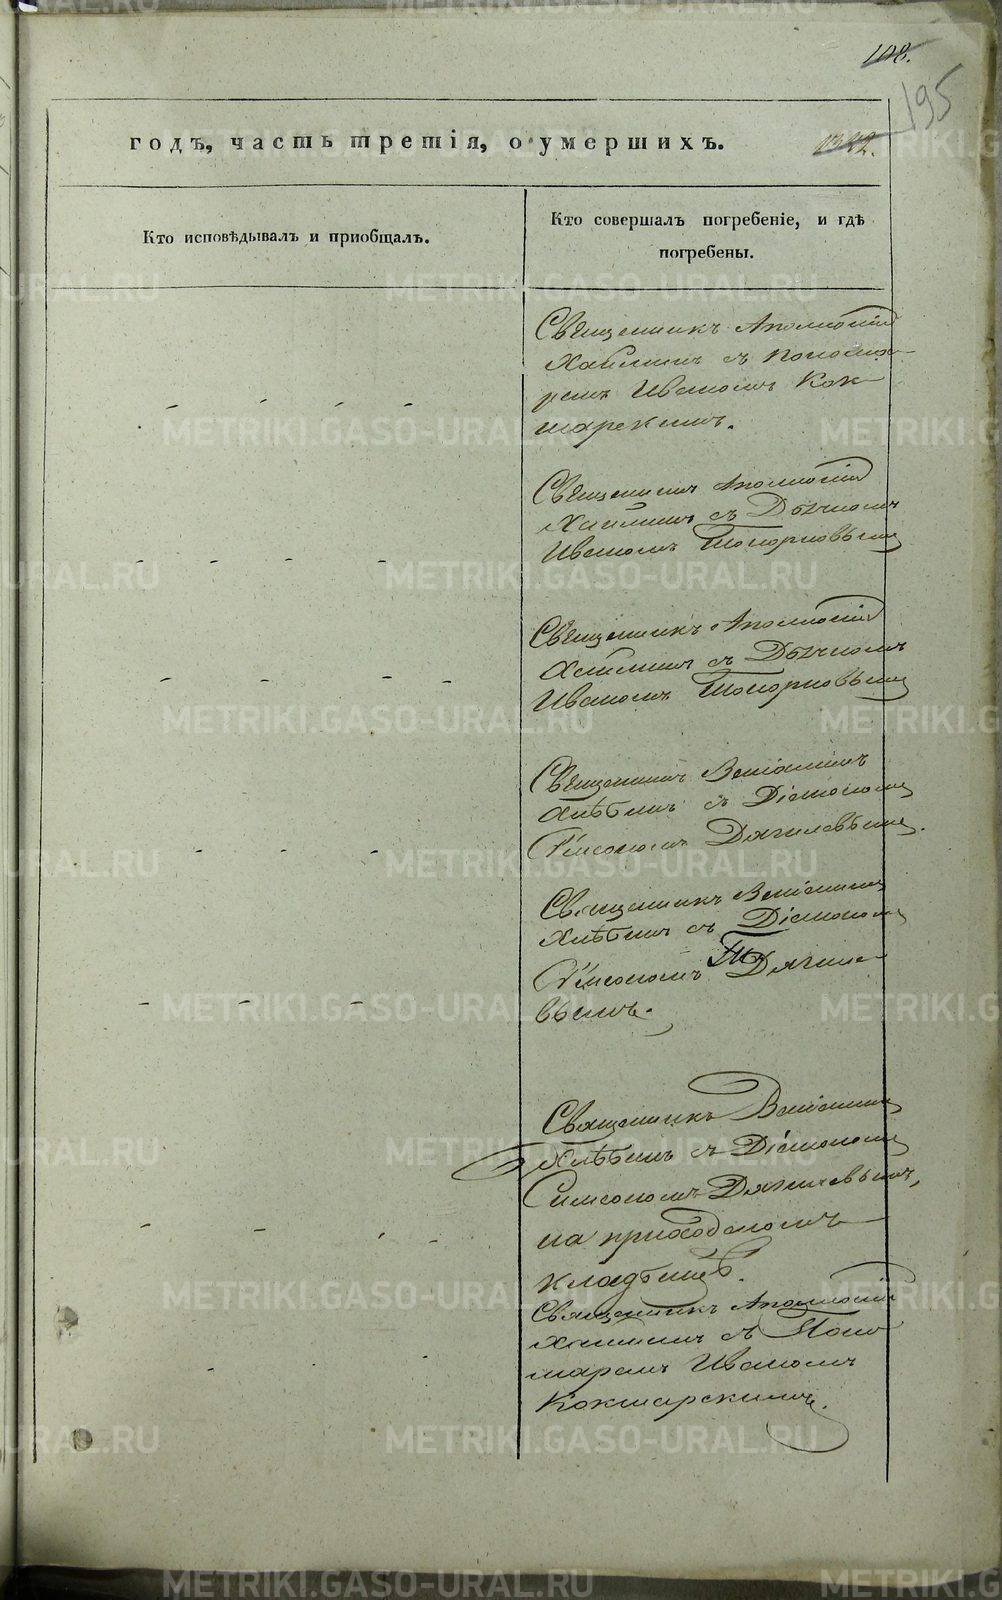 108.
195
годъ, часть третія, о умершихъ.
Кто исповѣдывалъ и пріобщалъ.
Кто совершалъ погребеніе, и гдѣ
погребены.
Священникъ Аполлоній
Хатлинъ съ Понома-
ремъ Иваномъ Кок
шарскимъ.
Священникъ Аполлоній
съ Дьячкомъ
Иваномъ Топорковымъ
Священникъ Аполлоній
съ Дьячкомъ
Иваномъ Топорковымъ
Священникъ Веніаминъ
Хлѣбинъ съ Діакономъ
Симеономъ Дягилевымъ.
Священникъ Веніаминъ
Хлѣбинъ съ Діакономъ
Симеономъ Дягиле
вымъ.
Священникъ Веніаминъ
Хлѣбинъ съ Діакономъ
Симеономъ Дягилевымъ,
на приходскомъ
кладбищѣ.
Священникъ Аполлоній
съ Поно
маремъ Иваномъ
Кокшарскимъ.
METRIKI.GASO-URAL.RU